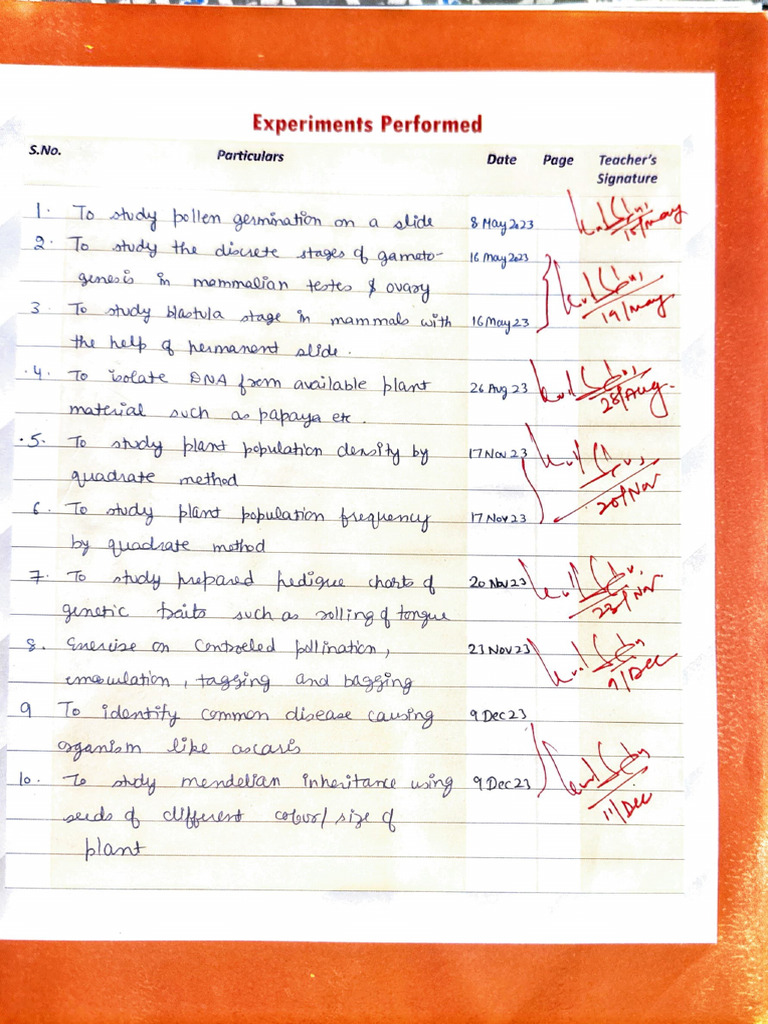 Experiments Performed
S.No. Particulars Date Page Teacher's Signature
1. To study pollen germination on a slide 8 May 2023 15/may
2. To study the discrete stages of gameto- 16 May 2023
genesis in mammalian testes & ovary 19/may
3 To study blastula stage in mammals with 16 May 23
the help of permanent slide.
4. To isolate DNA from available plant 26 Aug 23 28/Aug.
material such as papaya etc.
5. To study plant population density by 17 Nov 23
quadrate method 20/Nov
6. To study plant population frequency 17 Nov 23
by quadrate method
7. To study prepared pedigree charts of 20 Nov 23
genetic traits such as rolling of tongue 23/Nov
8. Exercise on controlled pollination, 23 Nov 23
emasculation, tagging and bagging 9/Dec
9 To identify common disease causing 9 Dec 23
organism like ascaris
10. To study mendelian inheritance using 9 Dec 23
seeds of different colour/size of 11/Dec
plant